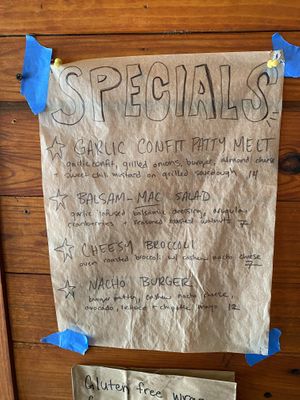 SPECIALS
GARLIC CONFIT PATTY MELT
garlic confit, grilled onions, burger, almond cheese
+ sweet chili mustard on grilled sourdough 14
BALSAM-MAC SALAD
garlic infused balsamic dressing, arugula,
cranberries + roasted walnuts 7
CHEESY BROCCOLI
oven roasted broccoli w/ cashew nacho cheese
7
NACHO BURGER
burger patty, cashew nacho cheese,
avocado, + chipotle mayo 12
Gluten free